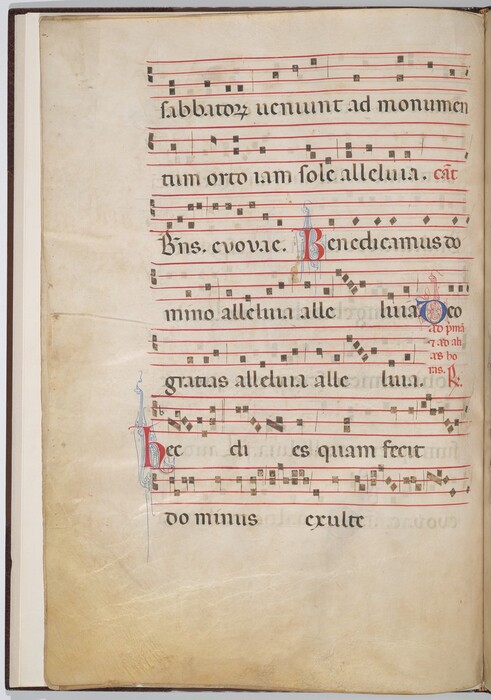 sabbatorꝝ ueniunt ad monumen
tum orto iam sole alleluia. cāt
B̄ns. evovae. Benedicamus do
mino alleluia alle luia Deo
ad p̄mā
⁊ ad ali
as ho
ras. ℟.
gratias alleluia alle luia.
hec di es quam fecit
dominus exulte